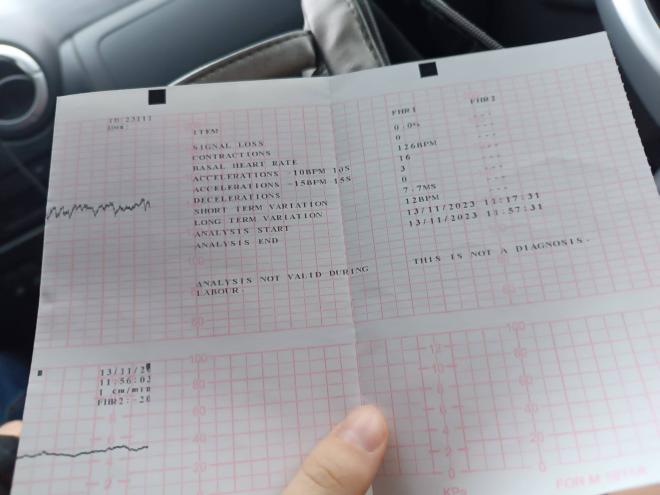 ID:23111
ITEM FHR1 FHR2
SIGNAL LOSS 0.0% ---
CONTRACTIONS 0 ---
BASAL HEART RATE 126BPM ---
ACCELERATIONS 10BPM 10S 16 ---
ACCELERATIONS -15BPM 15S 3 ---
DECELERATIONS 0 ---
SHORT TERM VARIATION 7.7MS ---
LONG TERM VARIATION 12BPM ---
ANALYSIS START 13/11/2023 11:17:31
ANALYSIS END 13/11/2023 11:57:31
ANALYSIS NOT VALID DURING LABOUR. THIS IS NOT A DIAGNOSIS.
60
13/11/2
11:56:02
1 cm/min
FHR2:-20
100
80
60
40
20
4
2
12
10
8
6
4
2
0
kPa
100
80
60
40
20
0
FOR M